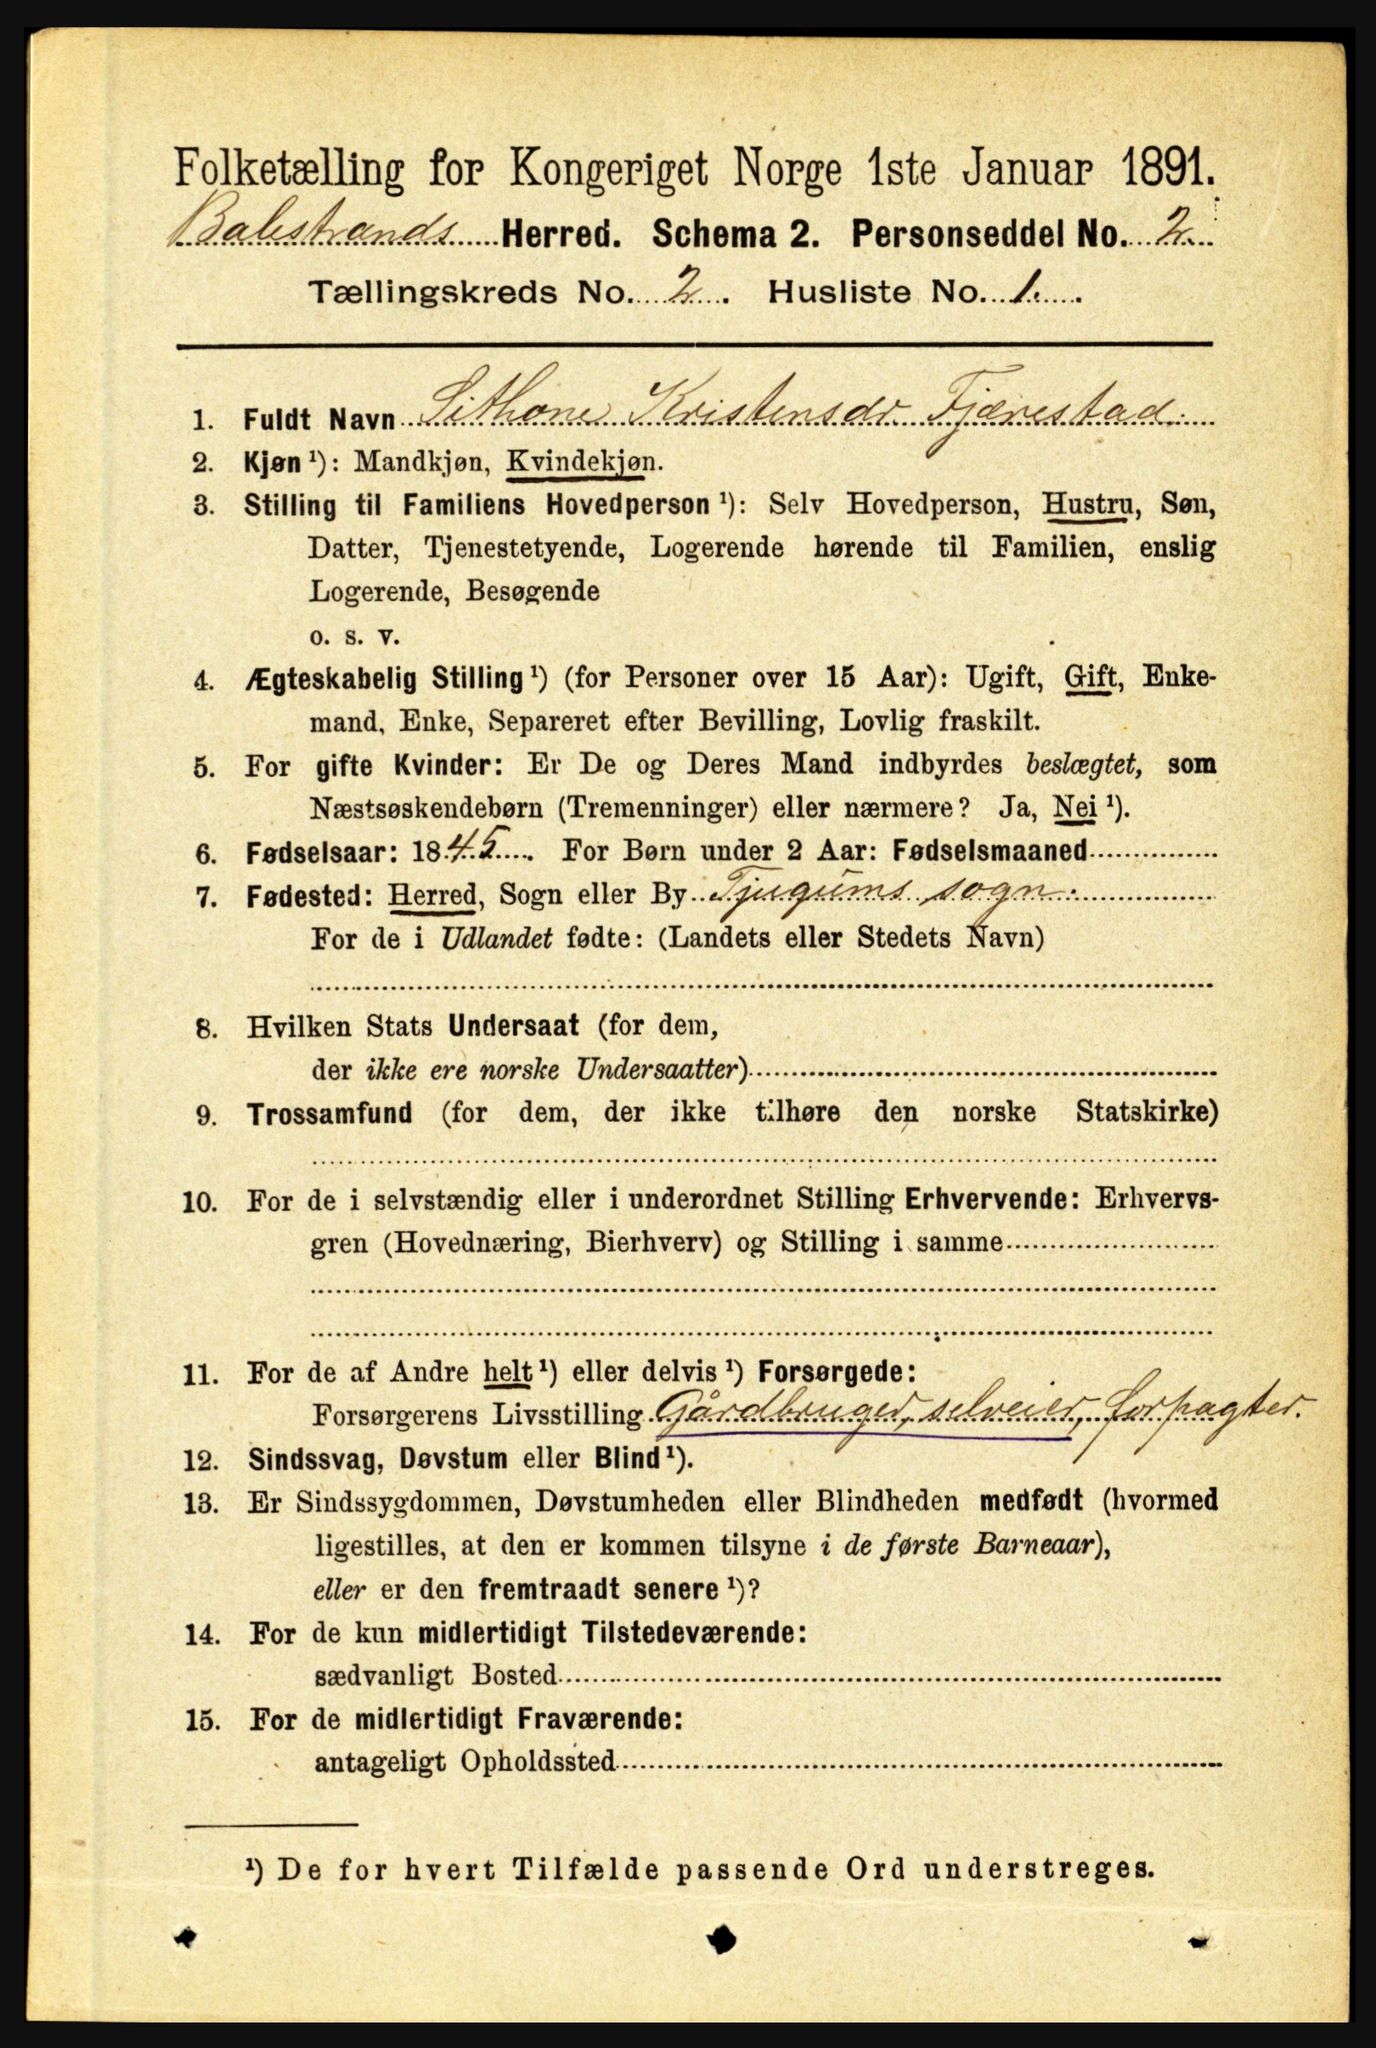 Folketælling for Kongeriget Norge 1ste Januar 1891.
Balestrands Herred. Schema 2. Personseddel No. 2.
Tællingskreds No. 2. Husliste No. 1.
1. Fuldt Navn Sithone Kristensdr. Fjærestad.
2. Kjøn ¹): Mandkjøn, Kvindekjøn.
3. Stilling til Familiens Hovedperson ¹): Selv Hovedperson, Hustru, Søn,
Datter, Tjenestetyende, Logerende hørende til Familien, enslig
Logerende, Besøgende
o. s. v.
4. Ægteskabelig Stilling ¹) (for Personer over 15 Aar): Ugift, Gift, Enke-
mand, Enke, Separeret efter Bevilling, Lovlig fraskilt.
5. For gifte Kvinder: Er De og Deres Mand indbyrdes beslægtet, som
Næstsøskendebørn (Tremenninger) eller nærmere? Ja, Nei ¹).
6. Fødselsaar: 1845. For Børn under 2 Aar: Fødselsmaaned
7. Fødested: Herred, Sogn eller By Tjugums sogn.
For de i Udlandet fødte: (Landets eller Stedets Navn)
8. Hvilken Stats Undersaat (for dem,
der ikke ere norske Undersaatter)
9. Trossamfund (for dem, der ikke tilhøre den norske Statskirke)
10. For de i selvstændig eller i underordnet Stilling Erhvervende: Erhvervs-
gren (Hovednæring, Bierhverv) og Stilling i samme
11. For de af Andre helt ¹) eller delvis ¹) Forsørgede:
Forsørgerens Livsstilling Gårdbruger, selveier, forpagter.
12. Sindssvag, Døvstum eller Blind ¹).
13. Er Sindssygdommen, Døvstumheden eller Blindheden medfødt (hvormed
ligestilles, at den er kommen tilsyne i de første Barneaar),
eller er den fremtraadt senere ¹)?
14. For de kun midlertidigt Tilstedeværende:
sædvanligt Bosted
15. For de midlertidigt Fraværende:
antageligt Opholdssted
¹) De for hvert Tilfælde passende Ord understreges.